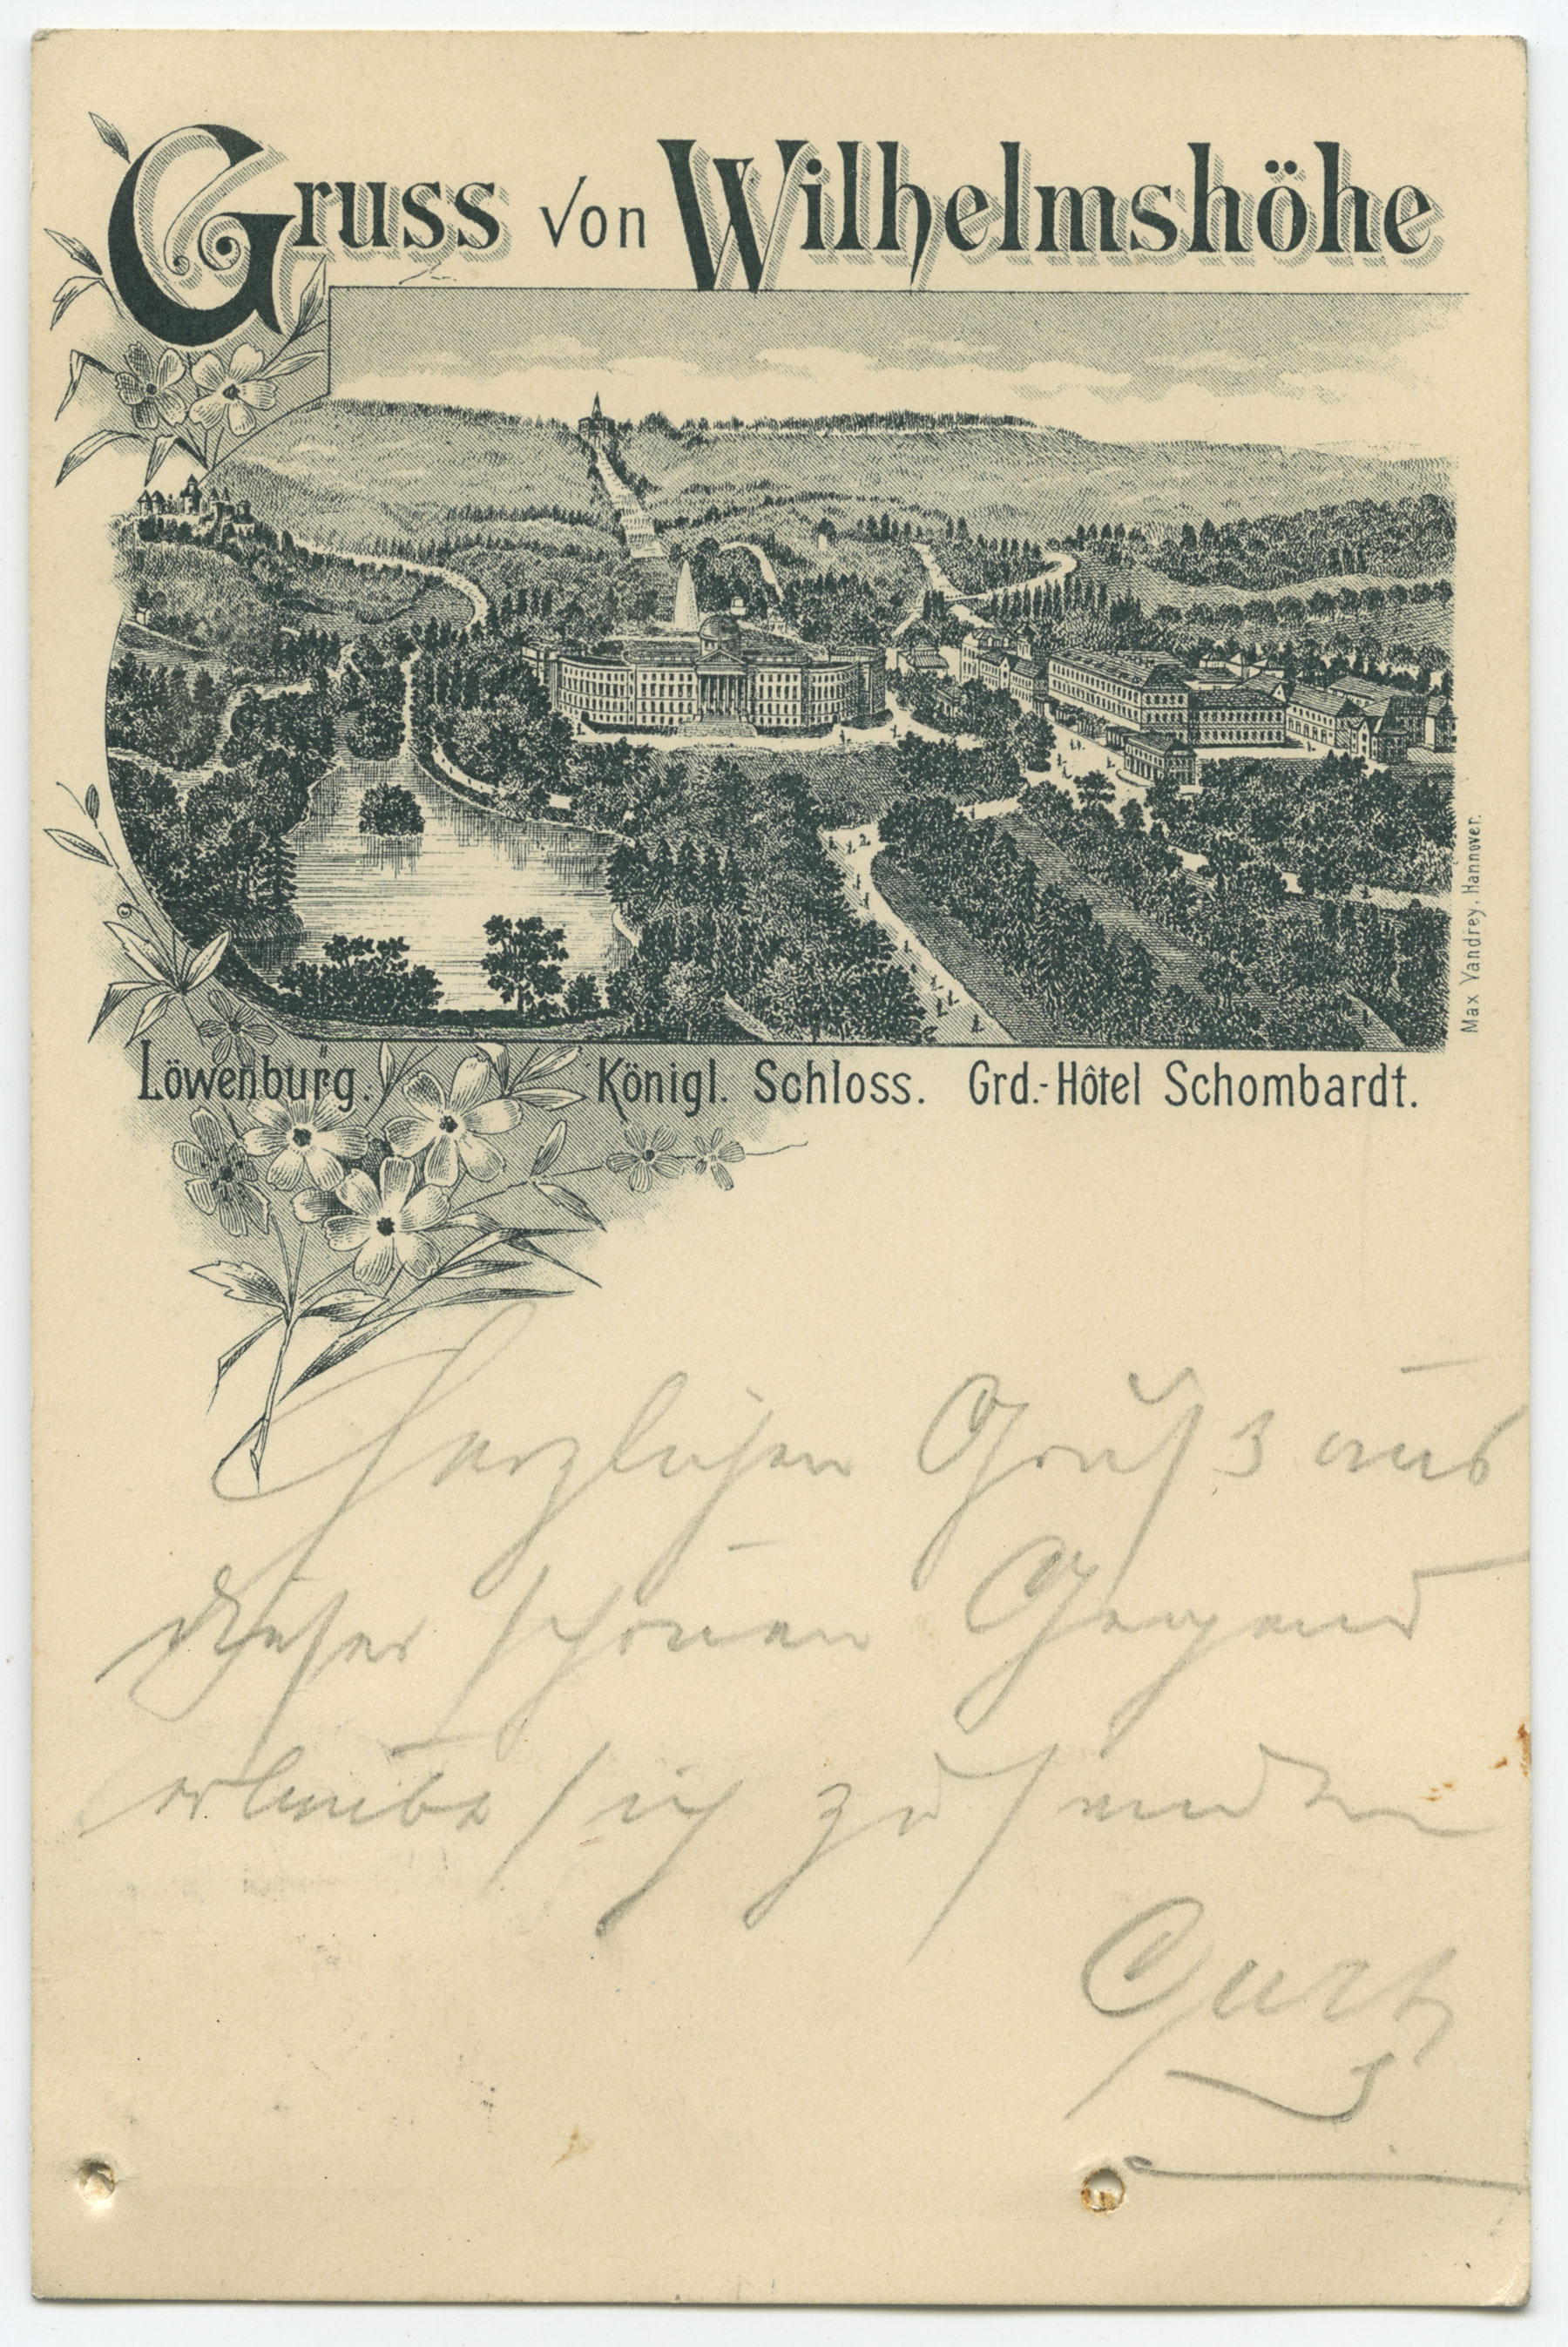 Gruss von Wilhelmshöhe
Max Vandrey, Hannover.
Löwenburg. Königl. Schloss. Grd.-Hôtel Schombardt.
Herzlichen Gruß aus
dieser schönen Gegend
erlaubt sich zu senden
Curt